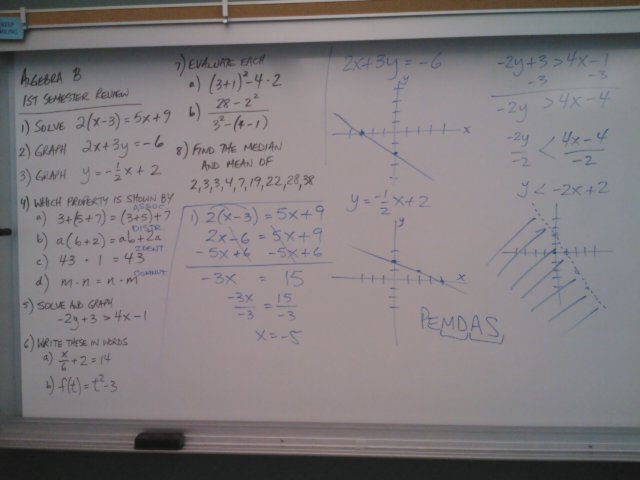 ALGEBRA B
1ST SEMESTER REVIEW
1) SOLVE 2(x-3)=5x+9
2) GRAPH 2x+3y=-6
3) GRAPH y=-1/2x+2
4) WHICH PROPERTY IS SHOWN BY
ASSOC
a) 3+(5+7)=(3+5)+7
DISTR.
b) a(b+2)=ab+2a
IDENT.
c) 43 · 1 = 43
COMMUT
d) m·n = n·m
5) SOLVE AND GRAPH
-2y+3>4x-1
6) WRITE THESE IN WORDS
a) x/6+2=14
b) f(t)=t²-3
7) EVALUATE EACH
a) (3+1)²-4·2
b) 28-2²
3²-(4-1)
8) FIND THE MEDIAN
AND MEAN OF
2,3,3,4,7,19,22,28,38
1) 2(x-3)=5x+9
2x-6=5x+9
-5x+6 -5x+6
-3x = 15
-3x/-3 = 15/-3
x=-5
2x+3y=-6
y
x
y=-1/2x+2
y
x
PEMDAS
-2y+3>4x-1
-3 -3
-2y >4x-4
-2y/-2 < 4x-4/-2
y<-2x+2